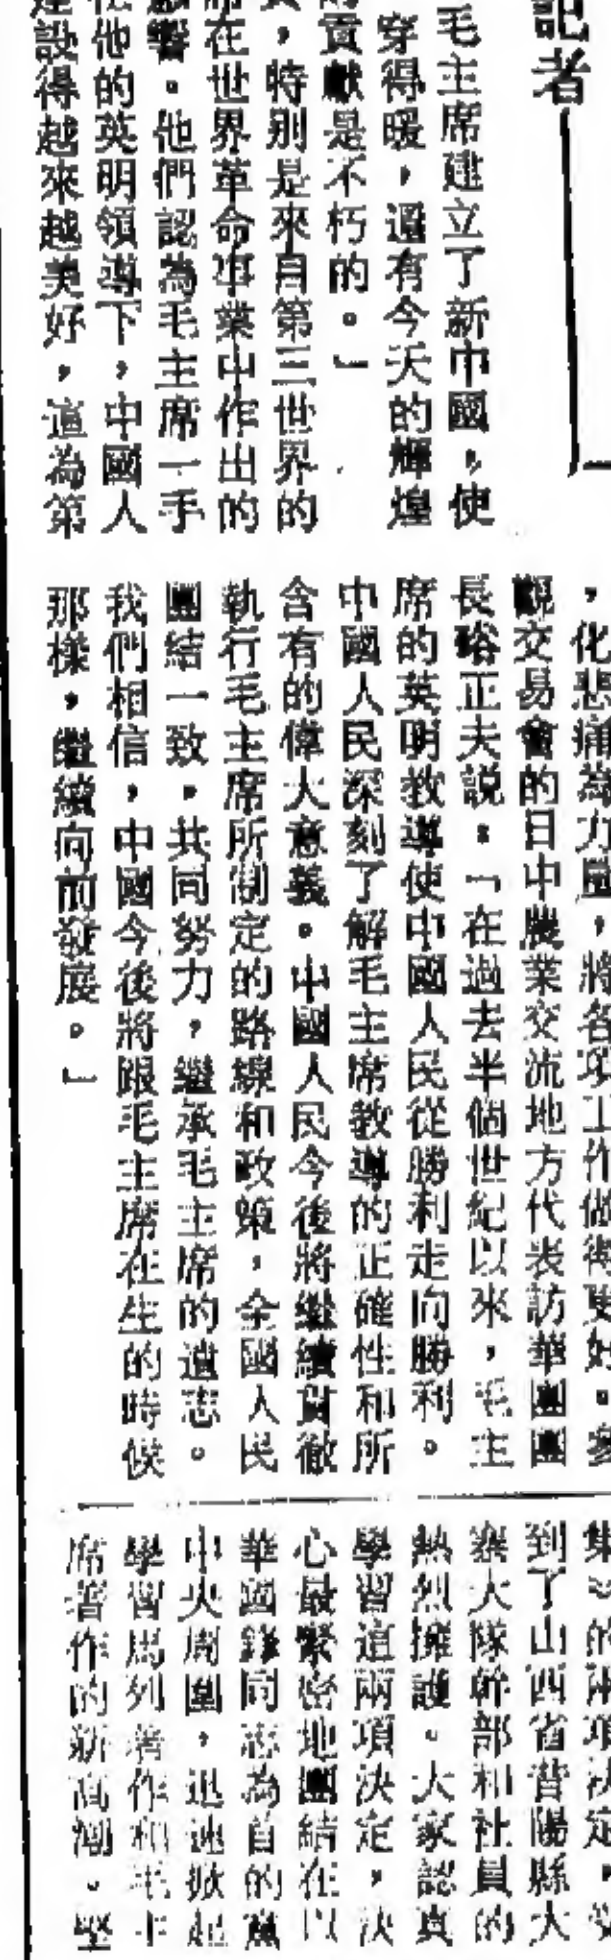 記者
毛主席建立了新中國，使
穿得暖，還有今天的輝煌
貢獻是不朽的。」
，特別是來自第三世界的
席在世界革命事業中作出的
影響。他們認為毛主席一手
他的英明領導下，中國人
建設得越來越美好，這為第
，化悲痛為力量，將各項工作做得更好。參
觀交易會的日中農業交流地方代表訪華團團
長路正夫説：「在過去半個世紀以來，毛主
席的英明教導使中國人民從勝利走向勝利。
中國人民深刻了解毛主席教導的正確性和所
含有的偉大意義。中國人民今後將繼續貫徹
執行毛主席所制定的路線和政策，全國人民
團結一致，共同努力，繼承毛主席的遺志。
我們相信，中國今後將跟毛主席在生的時候
那樣，繼續向前發展。」
集》的兩項決定，受
到了山西省昔陽縣大
寨大隊幹部和社員的
熱烈擁護。大家認真
學習這兩項決定，決
心最緊密地團結在以
華國鋒同志為首的黨
中央周圍，迅速掀起
學習馬列著作和毛主
席著作的新高潮。堅